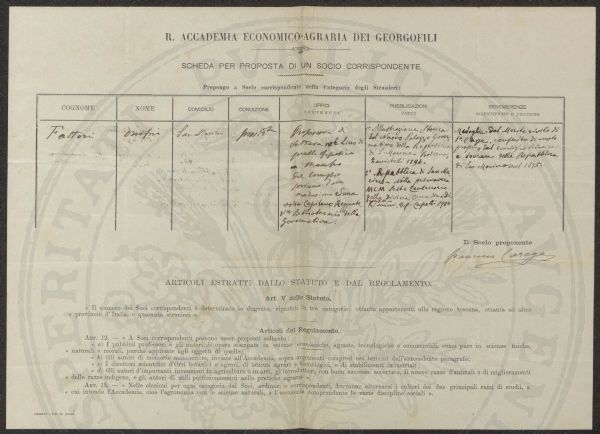 R. ACCADEMIA ECONOMICO-AGRARIA DEI GEORGOFILI
SCHEDA PER PROPOSTA DI UN SOCIO CORRISPONDENTE
Propongo a Socio corrispondente nella Categoria degli Stranieri:
COGNOME
NOME
DOMICILIO
CONDIZIONE
UFFICI
SOSTENUTI
PUBBLICAZIONI
FATTE
BENEMERENZE
SCIENTIFICHE O PRATICHE
Fattori
Onofrio
San Marino
Professore di
lettere nel Liceo di
quella Repubblica
Membro
del Consiglio
una
volta Capitano Reggente
Bibliotecario della
Governativa
Illustrazione Storica
del nuovo Palazzo Gover-
nativo della Repubblica
di S. Marino. Bologna
Zanichelli 1894.
2° Repubblica di San Ma-
rino
MCM Sesto Centenario
della Divina Commedia
Rimini, Tip. Capelli 1900
Medaglia del Merito
conferita di motu
proprio dal Consiglio Principe
e Sovrano della Repubblica
di San Marino nel 1895.
Il Socio proponente
ARTICOLI ESTRATTI DALLO STATUTO E DAL REGOLAMENTO.
Art. V dello Statuto.
« Il numero dei Soci corrispondenti è determinato in dugento, ripartiti in tre categorie: ottanta appartenenti alla regione toscana, ottanta ad altre
« provincie d'Italia, e quaranta stranieri »
Articoli del Regolamento.
ART. 12. — « A Soci corrispondenti possono esser proposti soltanto:
« a) I pubblici professori e gli autori di opere stampate in scienze economiche, agrarie, tecnologiche e commerciali, come pure in scienze fisiche,
« naturali e morali, purchè aspiranti agli oggetti di quelle;
« b) Gli autori di memorie manoscritte, inviate all'Accademia, sopra argomenti compresi nei termini dell'antecedente paragrafo;
« c) I direttori scientifici d'Orti botanici e agrari, di istituti agrari e tecnologici, e di stabilimenti industriali;
« d) Gli autori d'importanti invenzioni in agricoltura e in arti, gl'introduttori, con buon successo accertato, di nuove razze d'animali e di miglioramenti
« delle razze indigene, e gli autori di utili perfezionamenti nelle pratiche agrarie ».
ART. 15. — « Nelle elezioni per ogni categoria dei Soci, ordinari e corrispondenti, dovranno alternarsi i cultori dei due principali rami di studii, a
« cui intende l'Accademia, cioè l'agronomia con le scienze naturali, e l'economia comprendente le varie discipline sociali ».